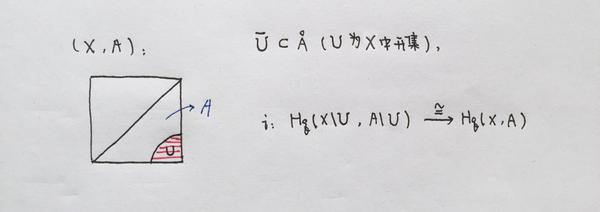 (X, A):
Ū ⊂ Å (U 为 X 中开集),
A
U
i: Hq(X\U, A\U) ≅→ Hq(X, A)